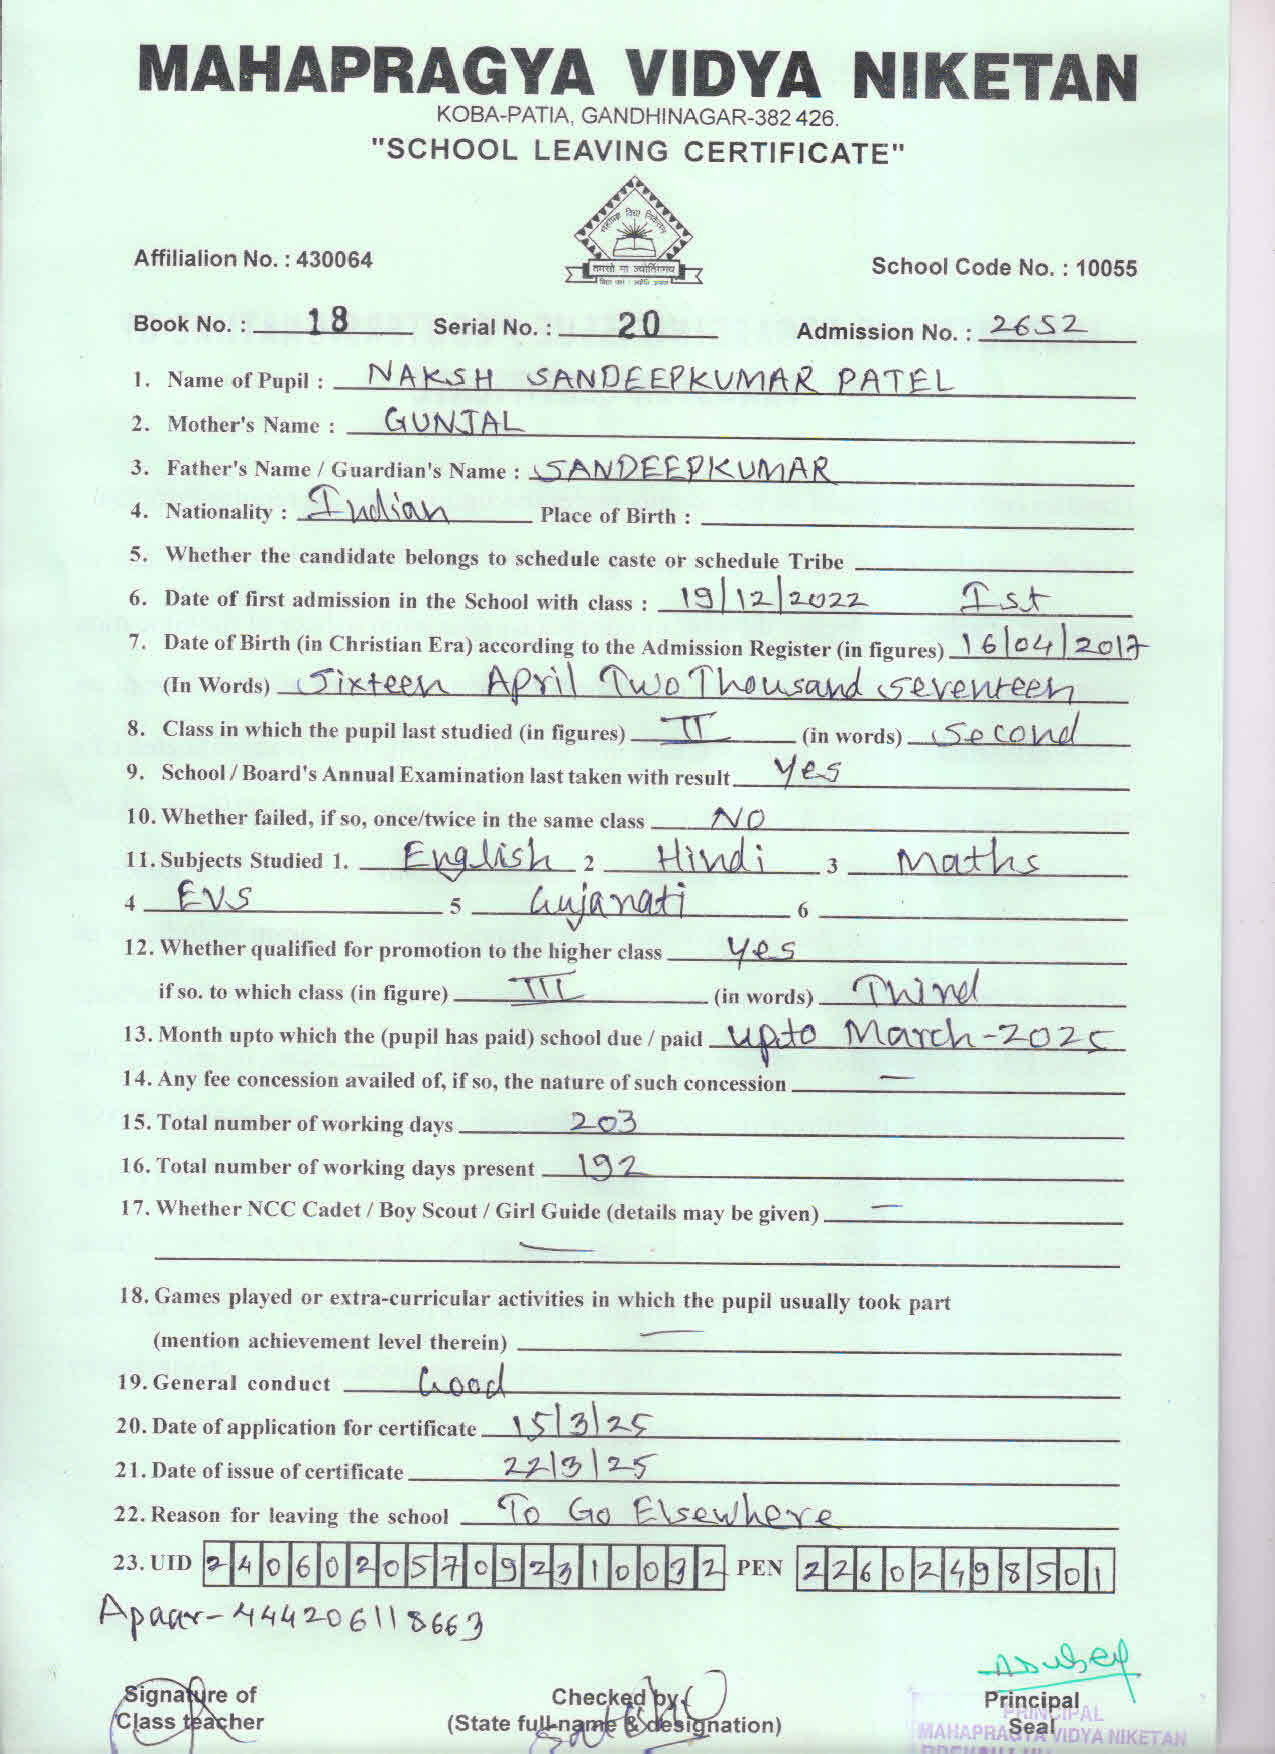 MAHAPRAGYA VIDYA NIKETAN
KOBA-PATIA, GANDHINAGAR-382 426.
"SCHOOL LEAVING CERTIFICATE"
तमसो मा ज्योतिर्गमय
Affilialion No. : 430064
School Code No. : 10055
Book No. : 18 Serial No. : 20 Admission No. : 2652
1. Name of Pupil : NAKSH SANDEEPKUMAR PATEL
2. Mother's Name : GUNJAL
3. Father's Name / Guardian's Name : SANDEEPKUMAR
4. Nationality : Indian Place of Birth :
5. Whether the candidate belongs to schedule caste or schedule Tribe
6. Date of first admission in the School with class : 19/12/2022 Ist
7. Date of Birth (in Christian Era) according to the Admission Register (in figures) 16/04/2017
(In Words) Sixteen April Two Thousand Seventeen
8. Class in which the pupil last studied (in figures) II (in words) Second
9. School / Board's Annual Examination last taken with result yes
10. Whether failed, if so, once/twice in the same class NO
11. Subjects Studied 1. English 2 Hindi 3 Maths
4 EVS 5 Gujarati 6
12. Whether qualified for promotion to the higher class yes
if so. to which class (in figure) III (in words) Third
13. Month upto which the (pupil has paid) school due / paid upto March-2025
14. Any fee concession availed of, if so, the nature of such concession —
15. Total number of working days 203
16. Total number of working days present 192
17. Whether NCC Cadet / Boy Scout / Girl Guide (details may be given) —
—
18. Games played or extra-curricular activities in which the pupil usually took part
(mention achievement level therein) —
19. General conduct Good
20. Date of application for certificate 15/3/25
21. Date of issue of certificate 22/3/25
22. Reason for leaving the school To Go Elsewhere
23. UID 240602057092310032 PEN 22602498501
Apaar-444206118663
Signature of
Class teacher
Checked by
(State full-name & designation)
Principal
Seal
PRINCIPAL
MAHAPRAGYA VIDYA NIKETAN